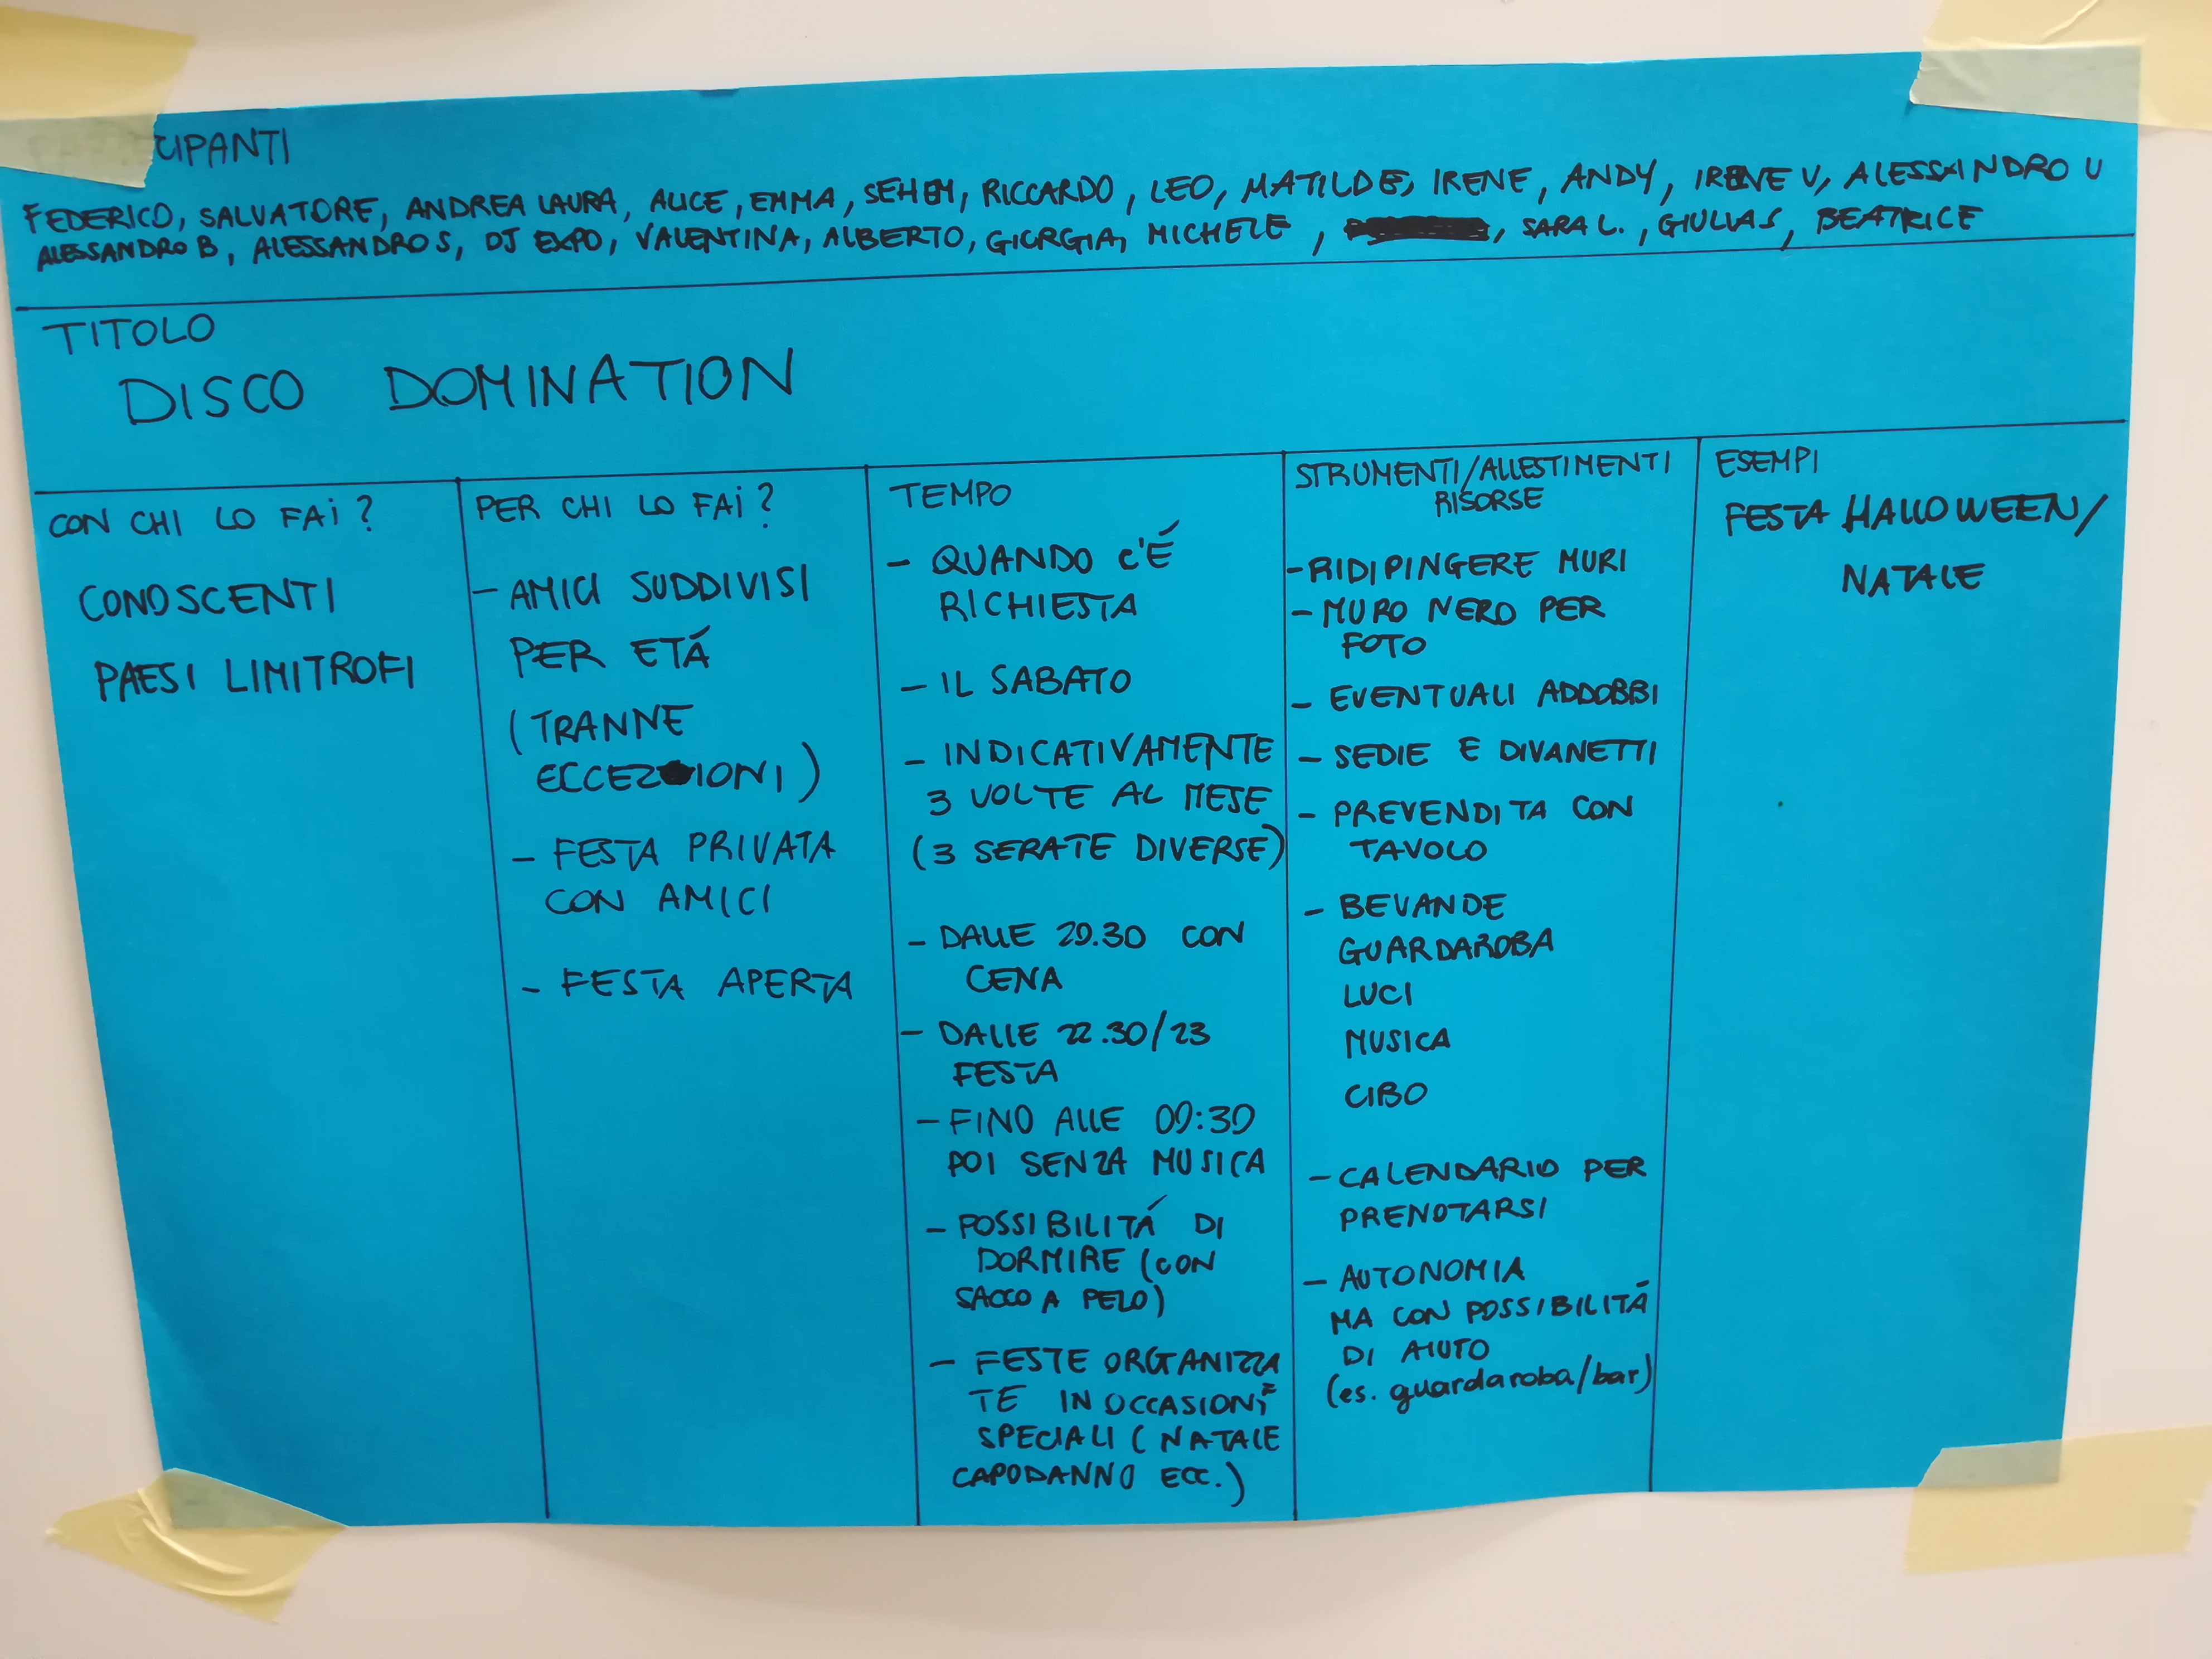 PARTECIPANTI
FEDERICO, SALVATORE, ANDREA LAURA, ALICE, EMMA, SEHEM, RICCARDO, LEO, MATILDE, IRENE, ANDY, IRENE V, ALESSANDRO U
ALESSANDRO B, ALESSANDRO S, DJ EXPO, VALENTINA, ALBERTO, GIORGIA, MICHELE, , SARA L., GIULIA S, BEATRICE
TITOLO
DISCO DOMINATION
CON CHI LO FAI?
CONOSCENTI
PAESI LIMITROFI
PER CHI LO FAI?
- AMICI SUDDIVISI
PER ETÁ
(TRANNE
ECCEZIONI)
- FESTA PRIVATA
CON AMICI
- FESTA APERTA
TEMPO
- QUANDO C'É
RICHIESTA
- IL SABATO
- INDICATIVAMENTE
3 VOLTE AL MESE
(3 SERATE DIVERSE)
- DALLE 20.30 CON
CENA
- DALLE 22.30/23
FESTA
- FINO ALLE 00:30
POI SENZA MUSICA
- POSSIBILITÁ DI
DORMIRE (CON
SACCO A PELO)
- FESTE ORGANIZZA
TE IN OCCASIONI
SPECIALI (NATALE
CAPODANNO ECC.)
STRUMENTI/ALLESTIMENTI
RISORSE
- RIDIPINGERE MURI
- MURO NERO PER
FOTO
- EVENTUALI ADDOBBI
- SEDIE E DIVANETTI
- PREVENDITA CON
TAVOLO
- BEVANDE
GUARDAROBA
LUCI
MUSICA
CIBO
- CALENDARIO PER
PRENOTARSI
- AUTONOMIA
MA CON POSSIBILITÁ
DI AIUTO
(es. guardaroba/bar)
ESEMPI
FESTA HALLOWEEN/
NATALE